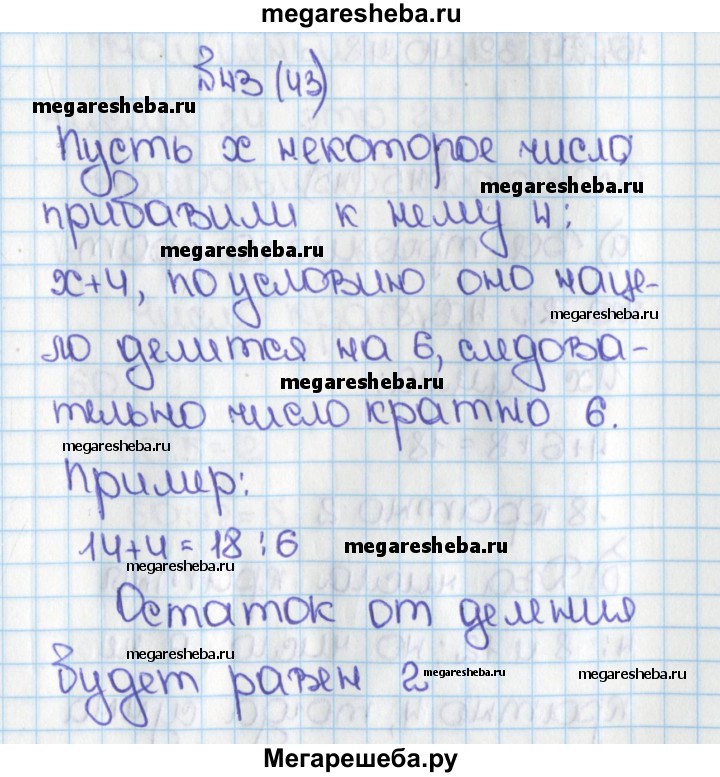 megaresheba.ru
№43 (43)
megaresheba.ru
Пусть x некоторое число
megaresheba.ru
прибавили к нему 4:
megaresheba.ru
x+4, по условию оно наце-
megaresheba.ru
ло делится на 6, следова-
megaresheba.ru
тельно число кратно 6.
megaresheba.ru
Пример:
14+4=18⋮6
megaresheba.ru
megaresheba.ru
Остаток от деления
megaresheba.ru
будет равен 2
megaresheba.ru
megaresheba.ru
Мегарешеба.ру